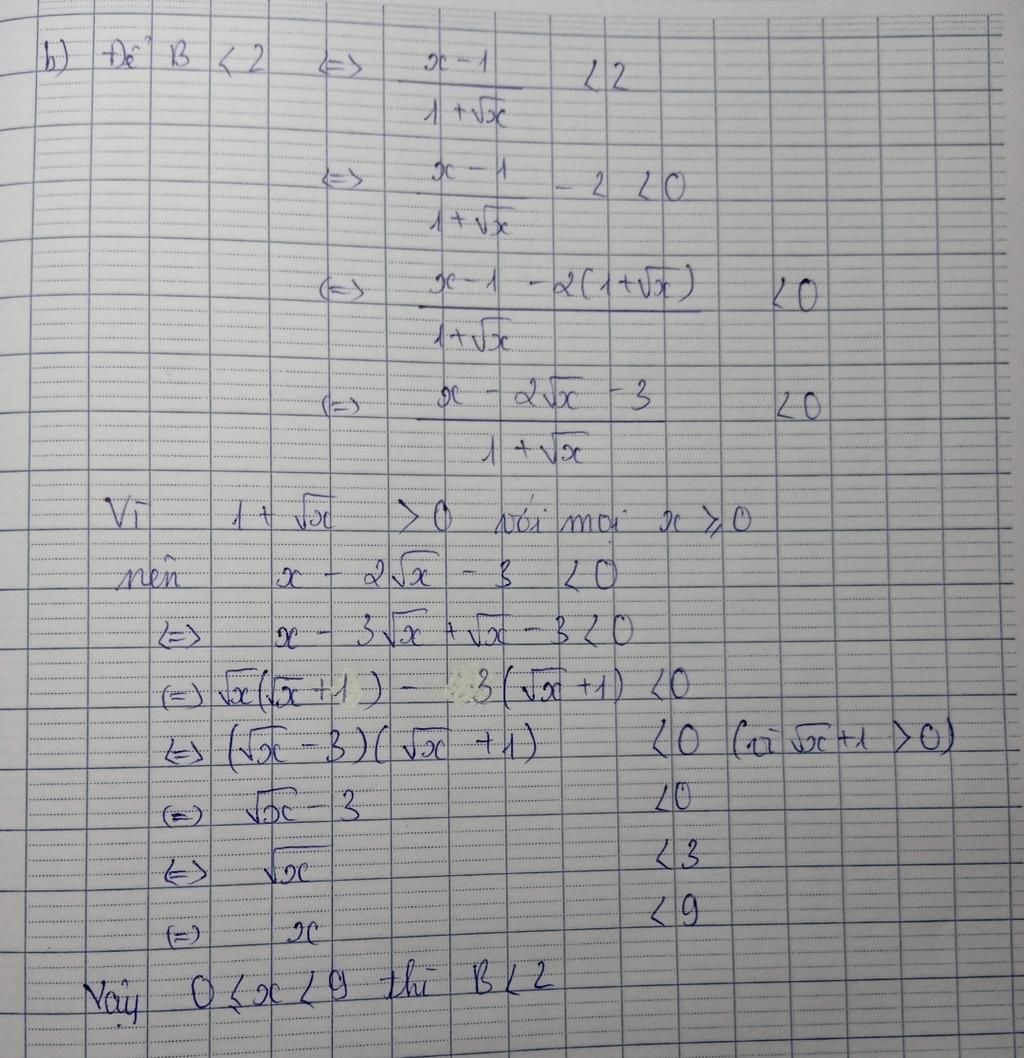 b) Để B < 2 <=> (x - 1)/(1 + √x) < 2
<=> (x - 1)/(1 + √x) - 2 < 0
<=> (x - 1 - 2(1+√x))/(1+√x) < 0
<=> (x - 2√x - 3)/(1 + √x) < 0
Vì 1 + √x > 0 với mọi x ⩾ 0
nên x - 2√x - 3 < 0
<=> x - 3√x + √x - 3 < 0
<=> √x(√x + 1) - 3(√x + 1) < 0
<=> (√x - 3)(√x + 1) < 0 (vì √x + 1 > 0)
<=> √x - 3 < 0
<=> √x < 3
<=> x < 9
Vậy 0 ⩽ x < 9 thì B < 2